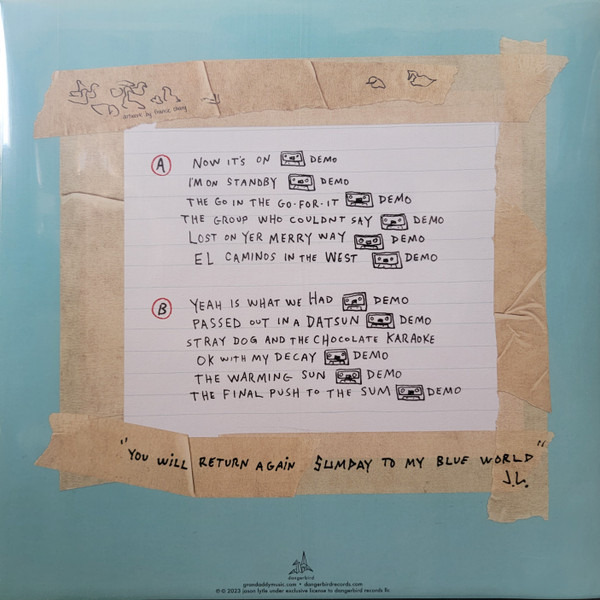 artwork by francis chang
A
NOW IT'S ON DEMO
I'M ON STANDBY DEMO
THE GO IN THE GO-FOR-IT DEMO
THE GROUP WHO COULDNT SAY DEMO
LOST ON YER MERRY WAY DEMO
EL CAMINOS IN THE WEST DEMO
B
YEAH IS WHAT WE HAD DEMO
PASSED OUT IN A DATSUN DEMO
STRAY DOG AND THE CHOCOLATE KARAOKE
OK WITH MY DECAY DEMO
THE WARMING SUN DEMO
THE FINAL PUSH TO THE SUM DEMO
"YOU WILL RETURN AGAIN SUMDAY TO MY BLUE WORLD"
J.L.
dangerbird
grandaddymusic.com • dangerbirdrecords.com
℗ © 2023 jason lytle under exclusive license to dangerbird records llc